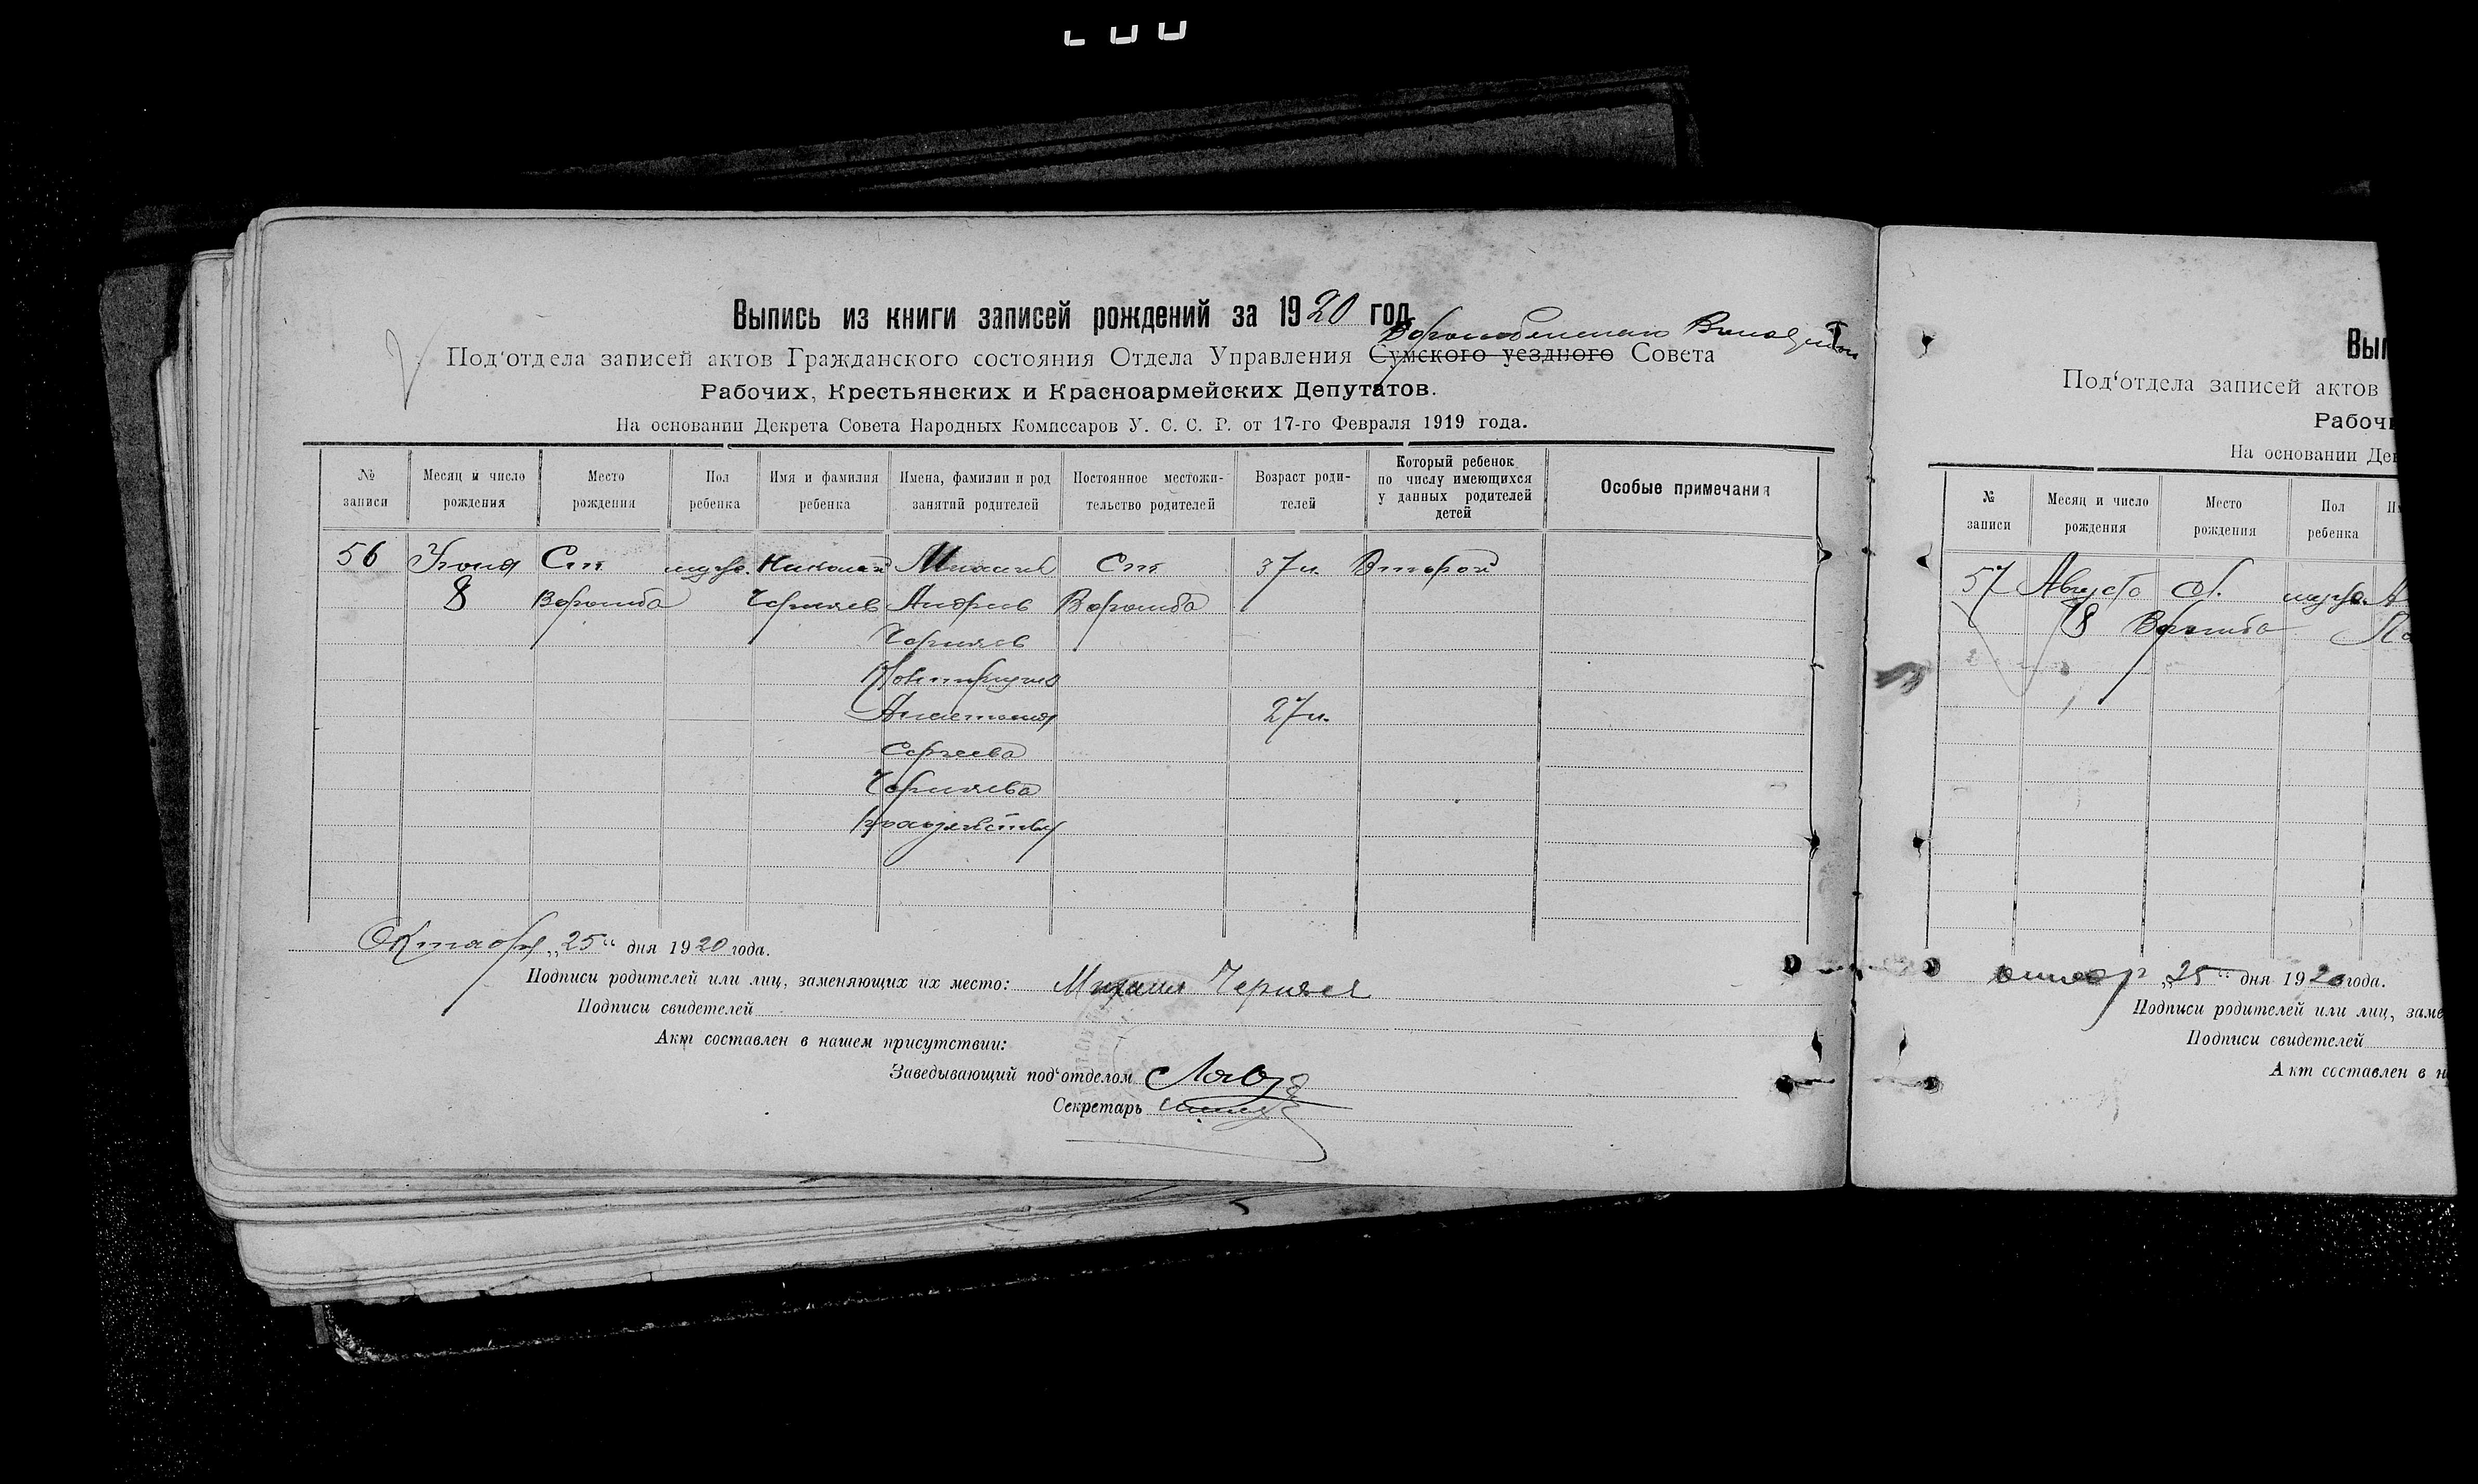 Выпись из книги записей рождений за 1920 год
Под'отдела записей актов Гражданского состояния Отдела Управления Сумского уездного Совета
Рабочих, Крестьянских и Красноармейских Депутатов.
На основании Декрета Совета Народных Комиссаров У. С. С. Р. от 17-го Февраля 1919 года.
№ записи
Месяц и число рождения
Место рождения
Пол ребенка
Имя и фамилия ребенка
Имена, фамилии и род занятий родителей
Постоянное местожительство родителей
Возраст родителей
Который ребенок по числу имеющихся у данных родителей детей
Особые примечания
56 Июня Ст. мужс. Николай Михаил Ст. 37 л. Второй
8 Ворожба Черняев Андреев Ворожба
Черняев
27 л.
Сергеева
Черняева
Октября „25“ дня 1920 года.
Подписи родителей или лиц, заменяющих их место: Михаил Черняев
Подписи свидетелей
Акт составлен в нашем присутствии:
Заведывающий под'отделом
Секретарь
Вып
Под'отдела записей актов
Рабочи
На основании Дек
№ записи
Месяц и число рождения
Место рождения
Пол ребенка
57 Августа Ст. мужс.
8 Ворожба
октябр „25“ дня 1920 года.
Подписи родителей или лиц, заме
Подписи свидетелей
Акт составлен в н